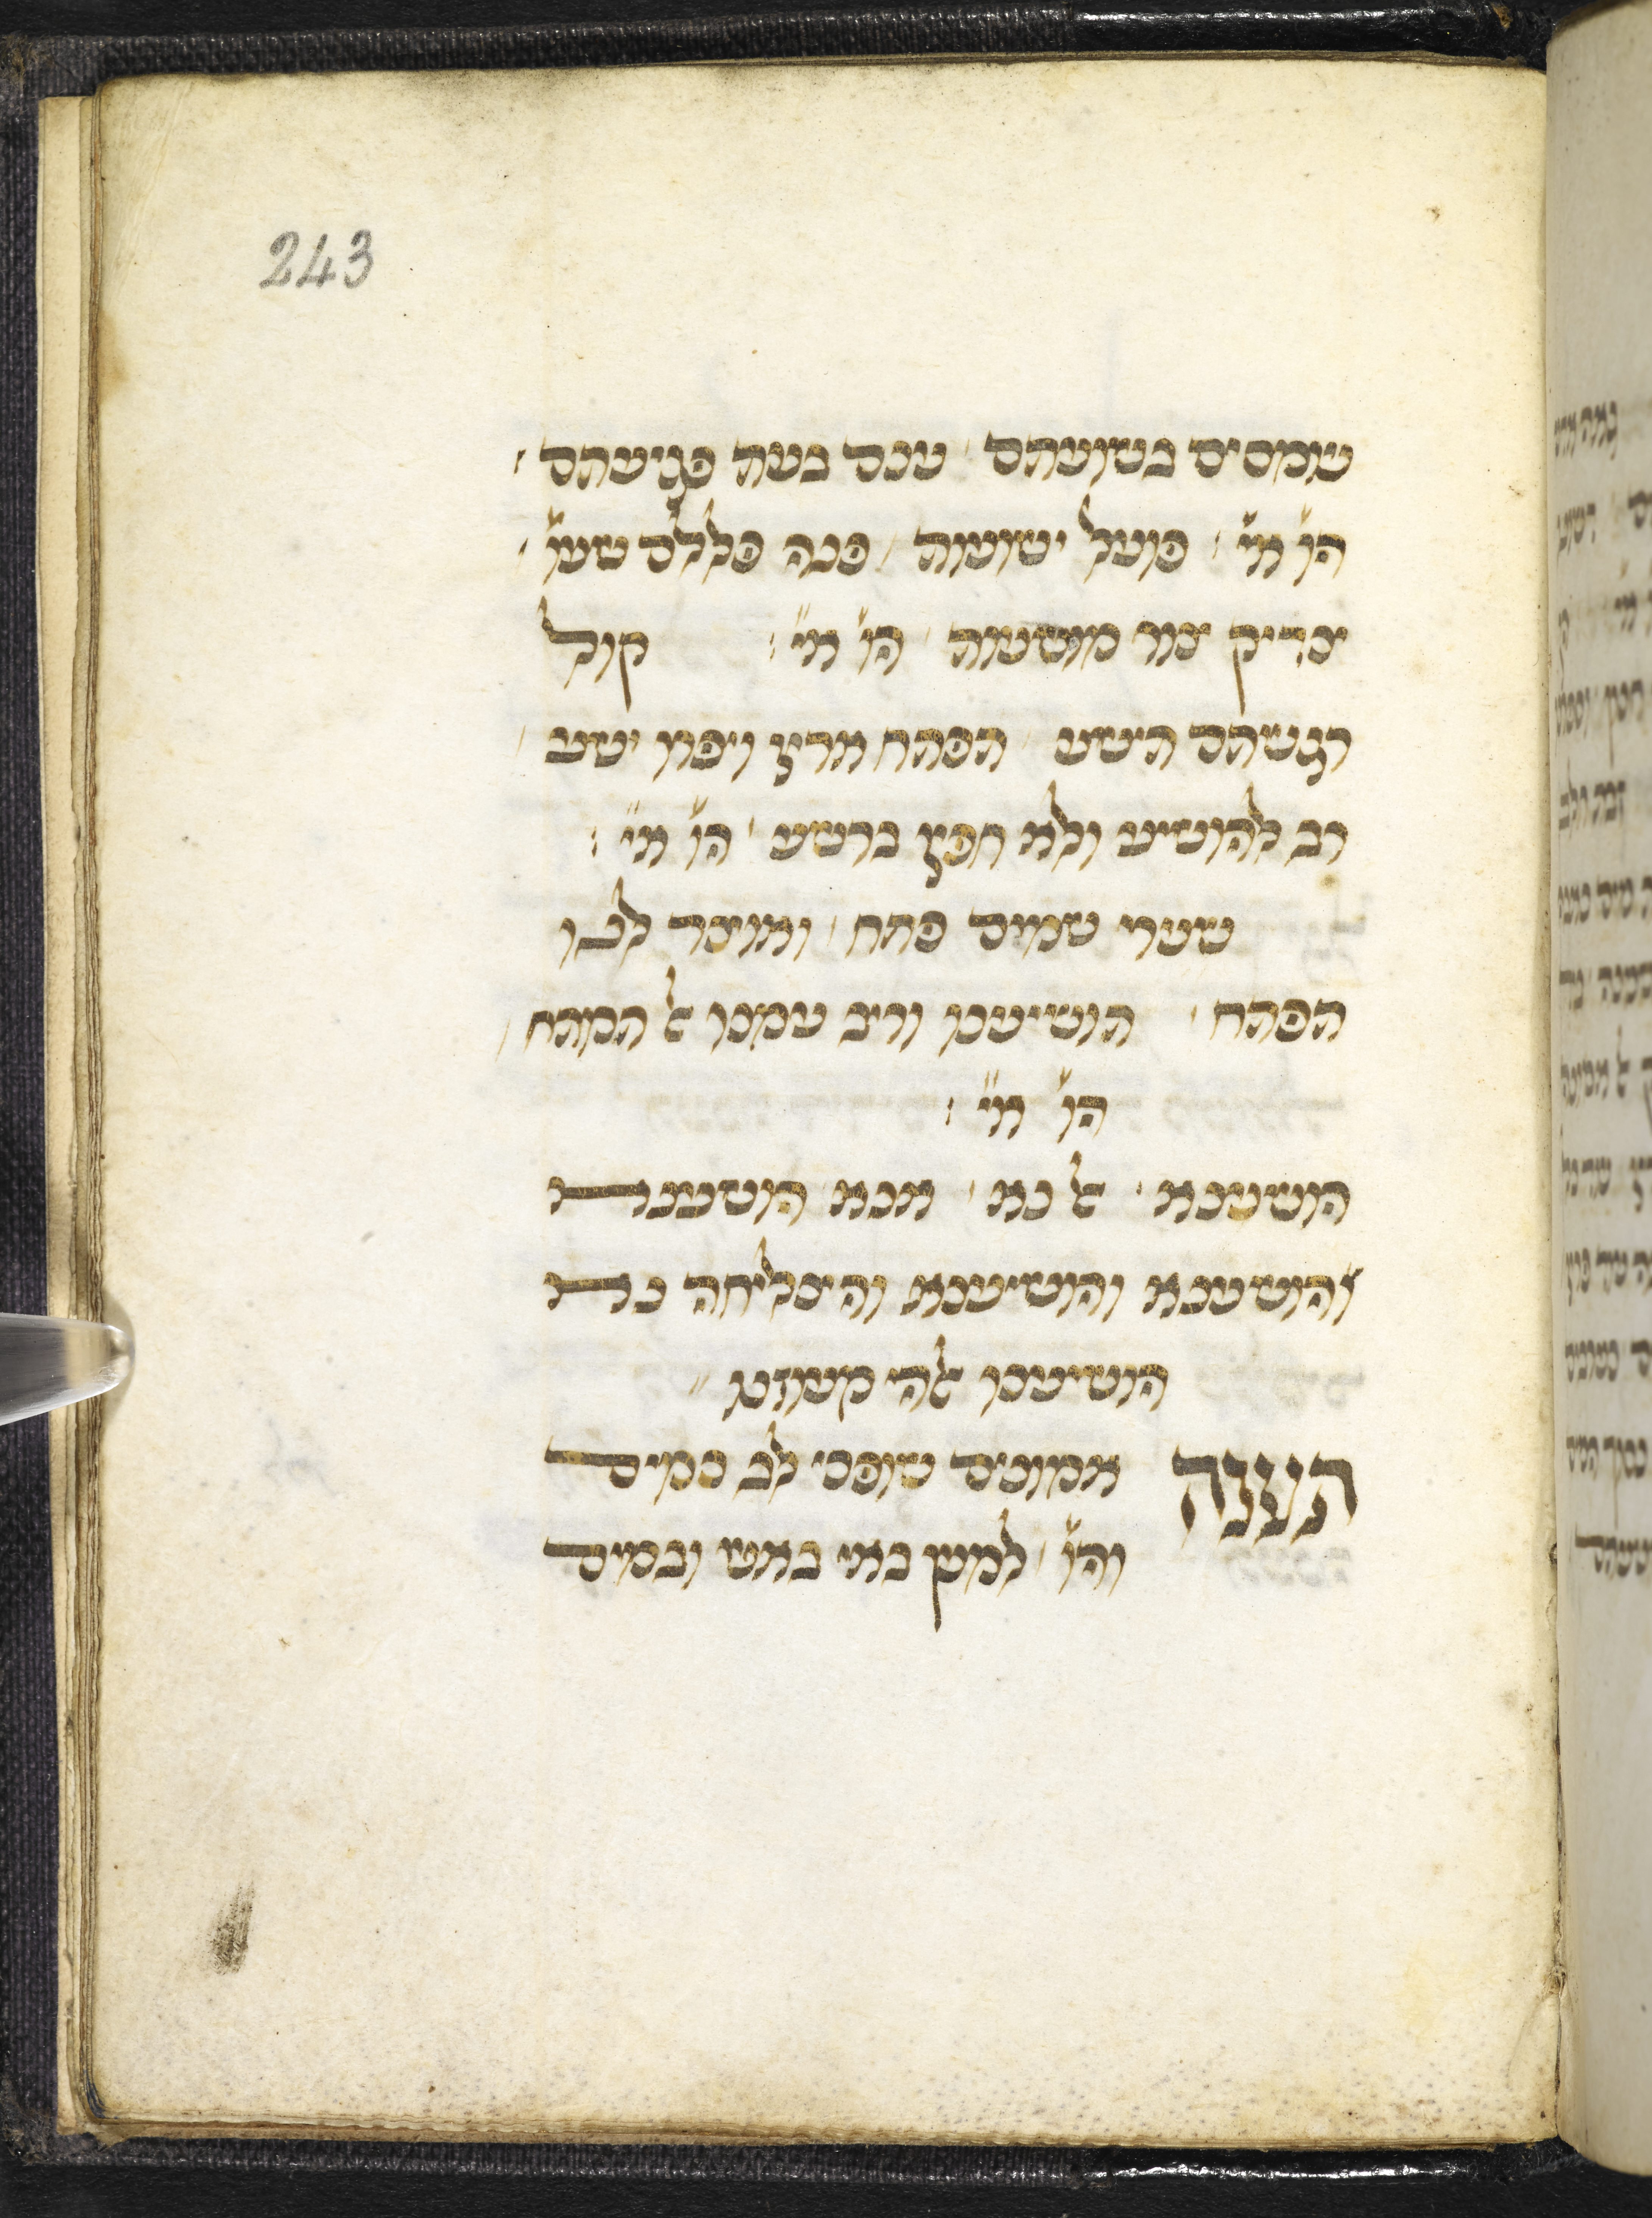 243
עמוסים בשועתם / ענם בעת פגיעתם :
הו' אי' : פועל ישועות / פנה פללם שעו' /
צדיק צור מושעות / הו' אי' : קול
רגשתם תישע / תפתח ארץ ויפרו ישע /
רב להושיע ולא חפץ ברשע / הו' אי' :
שערי שמים פתח / ואוצר לנו
תפתח / הושיענו וריב עמנו אל תמתח /
הו' אי' :
הושענא / אל נא / אנא הושענא
והושענא והושיענא והצליחה נא
הושיענו אלהי מעוזנו
תענה אמונים שופכי לב כמים
והו' / למען בא באש ובמים